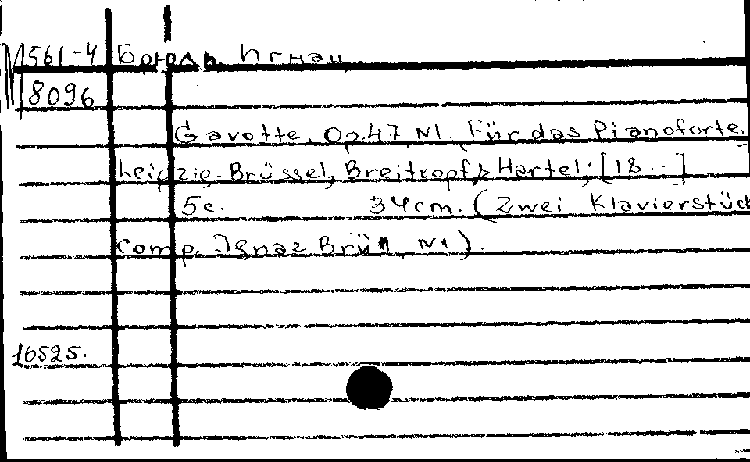 М561-4 Брюль Игнац
8096
Gavotte. Op.47 N1. Für das Pianoforte.
Leipzig-Brüssel, Breitkopf & Härtel; [18...]
5c. 34cm. (Zwei Klavierstück
comp. Ignaz Brüll, N1).
16525.